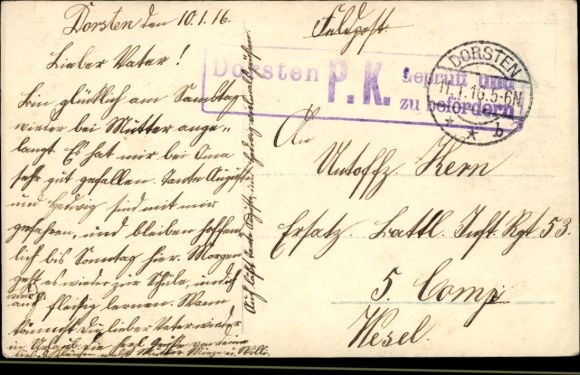 Dorsten den 10.1.16.
Lieber Vater!
Bin glücklich am Samstag
wieder bei Mutter ange-
langt. Es hat mir bei Oma
sehr gut gefallen. Tante Auguste
und Hedwig sind mit mir
gefahren, und bleiben hoffent-
lich bis Sonntag hier. Morgen
geht es wieder zur Schule, und ich
will fleißig lernen. Wann
kommst Du lieber Vater wieder
in Urlaub. Die herzl. Grüße von deine
Mutter
Feldpost.
Dorsten P.K. Geprüft und
zu befördern
DORSTEN
11.1.16.5-6N.
* * b
An
Untoffz Kern
Ersatz. Batl. Inft. Rgt 53.
5. Comp
Wesel.